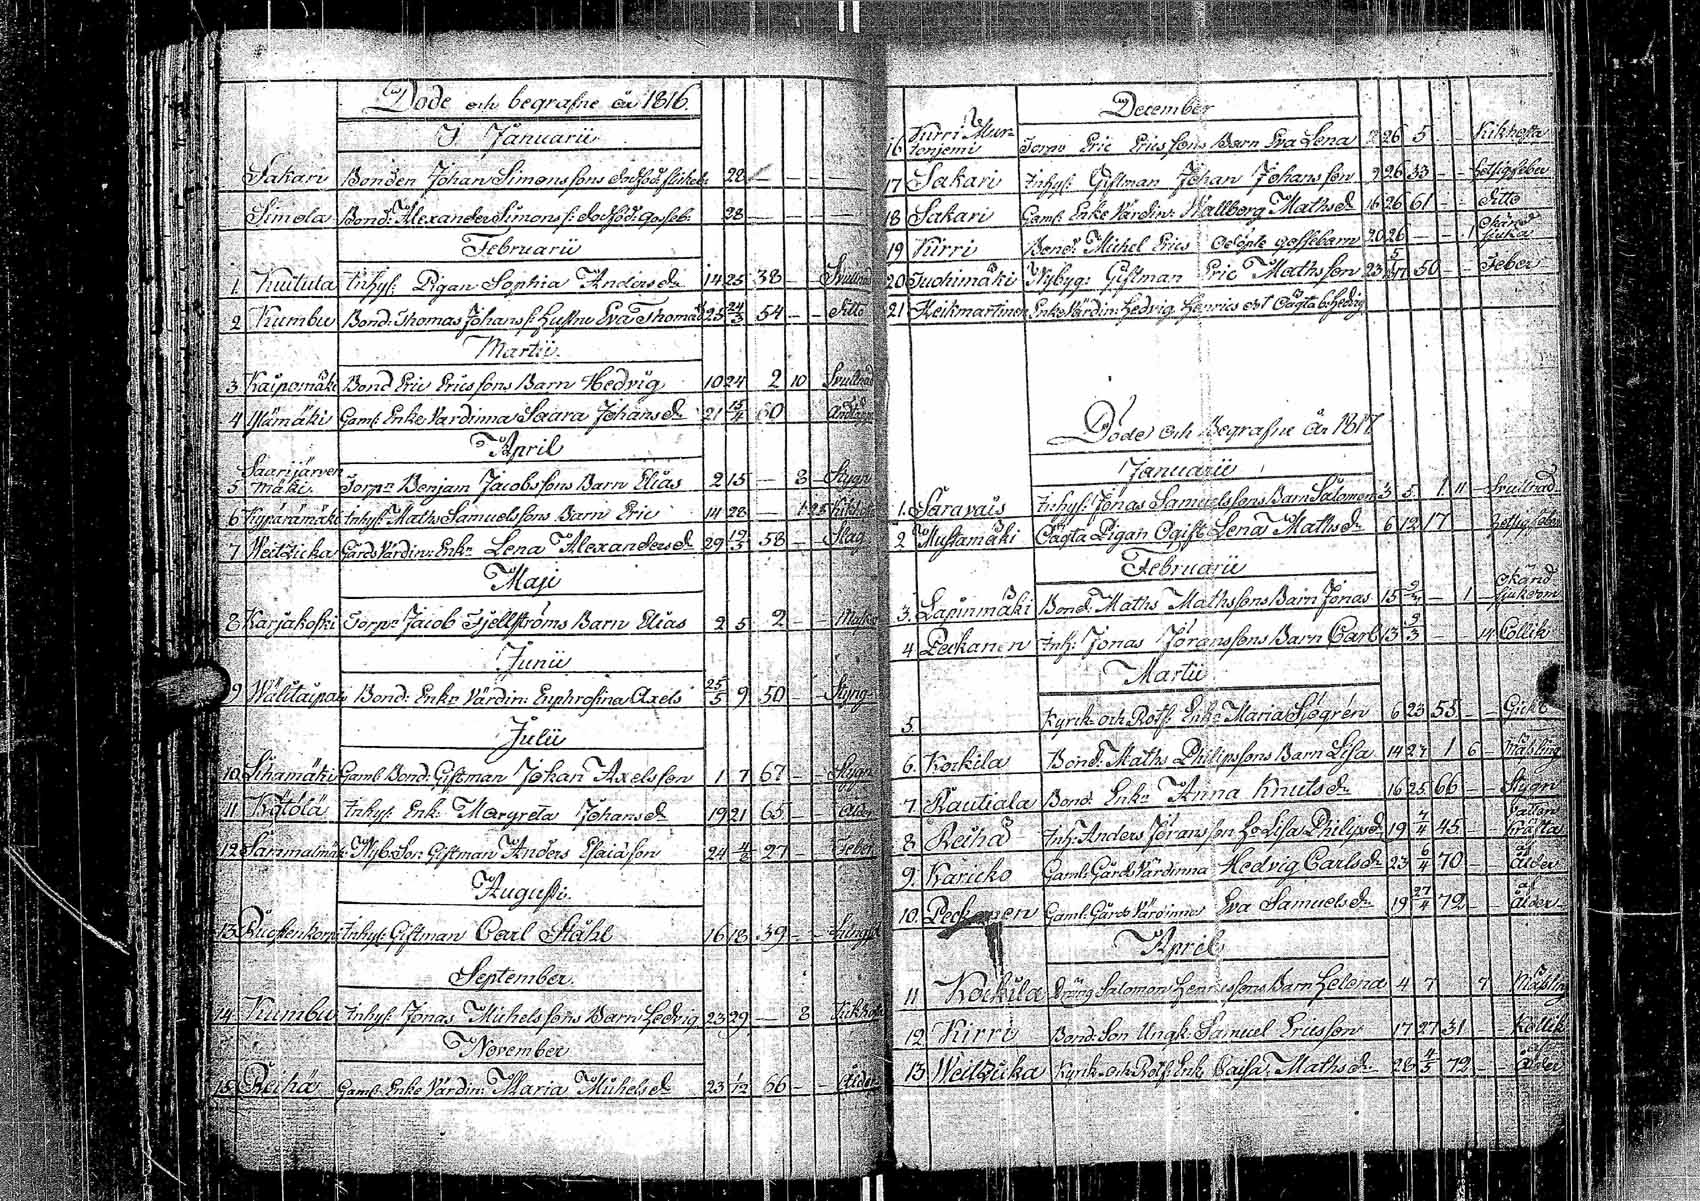 Döde och begrafne år 1816
I Januarii
Sakari Bonden Johan Simonssons dödföd flickeb: 28 — — —
Simola Bond: Alexander Simons s: dödföd Gosseb: 28 — — —
Februarii
1 Kuituta Inhys: Pigan Sophia Andersdr 14 25 38 — Svullnad
2 Kumbu Bond: Thomas Johans s: hustru Eva Thomasdr 25 24/3 54 — — ditto
Martii
3 Kaipomäki Bond Eric Ericssons Barn Hedvig 10 24 2 10 Svullnad
4 Ylämäki Gaml: Enke Värdinna Saara Johansdr 21 15/4 60
April
5 Saarijärven mäki Torpr Benjam Jacobssons Barn Elias 2 15 — 3 Stygn
6 Inhys: Maths Samuelssons Barn Eric 14 28 — 1 25 Kikhosta
7 Weitzicka Gårds Värdin: Enkn Lena Alexandersdr 29 12/5 58 — Slag
Maji
8 Karjakoski Torpr Jacob Fjellströms Barn Elias 2 5 2 — —
Junii
9 Bond: Enkn Värdin: Euphrosina Axels 25/5 9 50 — Styng
Julii
10 Sikamäki Gaml Bond: Giftman Johan Axelsson 1 7 67 — — Stygn
11 Kötölä Inhys: Enk: Margreta Johansd 19 21 65 — ålder
12 Sammalmäki Nyb: Son: Giftman Anders Esaiasson 24 4/8 27 — Feber
Augusti
13 Inhys: Giftman Carl Ståhl 16 18 39 — —
September
14 Kumbu Inhys: Jonas Michelssons Barn Hedvig 23 29 — 8 Kikhosta
November
15 Reihä Gaml: Enke Värdin: Maria Michelsdr 23 1/12 66 — ålder
December
16 Kirri Mur- Torpr Eric Ericssons Barn Eva Lena 2 26 5 — — Kikhosta
tonjemi
17 Sakari Inhys: Giftman Johan Johansson 9 26 33 — — hetsigfeber
18 Sakari Gaml: Enke Värdin: Wallborg Mathsdr 16 26 61 — — ditto
19 Kirri Bond: Michel Erics odöpte gossebarn 20 26 — — 1 okänd sjukd
20 Juohimäki Nybyg: Giftman Eric Mathsson 23 5/17 50 — — Feber
21 Heikmartinen Enke Värdin: Hedvig Henrics
Döde och Begrafne år 1817
Januarii
1. Saravais Inhys: Jonas Samuelssons Barn Salomon 3 5 1 11 — Svullnad
2 Mustamäki Pigan Ogift Lena Mathsdr 6 12 17 hetsig feber
Februarii
3. Lapinmäki Bond: Maths Mathssons Barn Jonas 15 9/3 — 1 okänd sjukdom
4 Peckanen Inh: Jonas Jöranssons Barn Carl 13 9/3 — 14 Collik
Martii
5. Kyrk- och Rotf: Enkn Maria Sjögrén 6 23 55 — — Gickt
6. Kockila Bond: Maths Philipssons Barn Lisa 14 27 1 6 — Mäßling
7. Rautiala Bond: Enkn Anna Knutsdr 16 25 66 — — Stygn
8 Reihä Inh: Anders Jöransson h: Lisa Philipsdr 19 7/4 45 — — Vatten Kräfta
9. Karicko Gaml: Gårds Värdinna Hedvig Carlsdr 23 6/4 70 — — af ålder
10. Peckanen Gaml: Gårds Värdinna Eva Samuelsdr 19 27/4 72 — — af ålder
April
11 Kockila Dräng Salomon Henricssons Barn Helena 4 7 7 Mäßling
12. Kirri Bond: Son Ungk: Samuel Ericsson 17 27 31 — — Kollik
13 Weitzicka Kyrk- och Rotf: Enk Caisa Mathsdr 28 4/5 72 — — af ålder